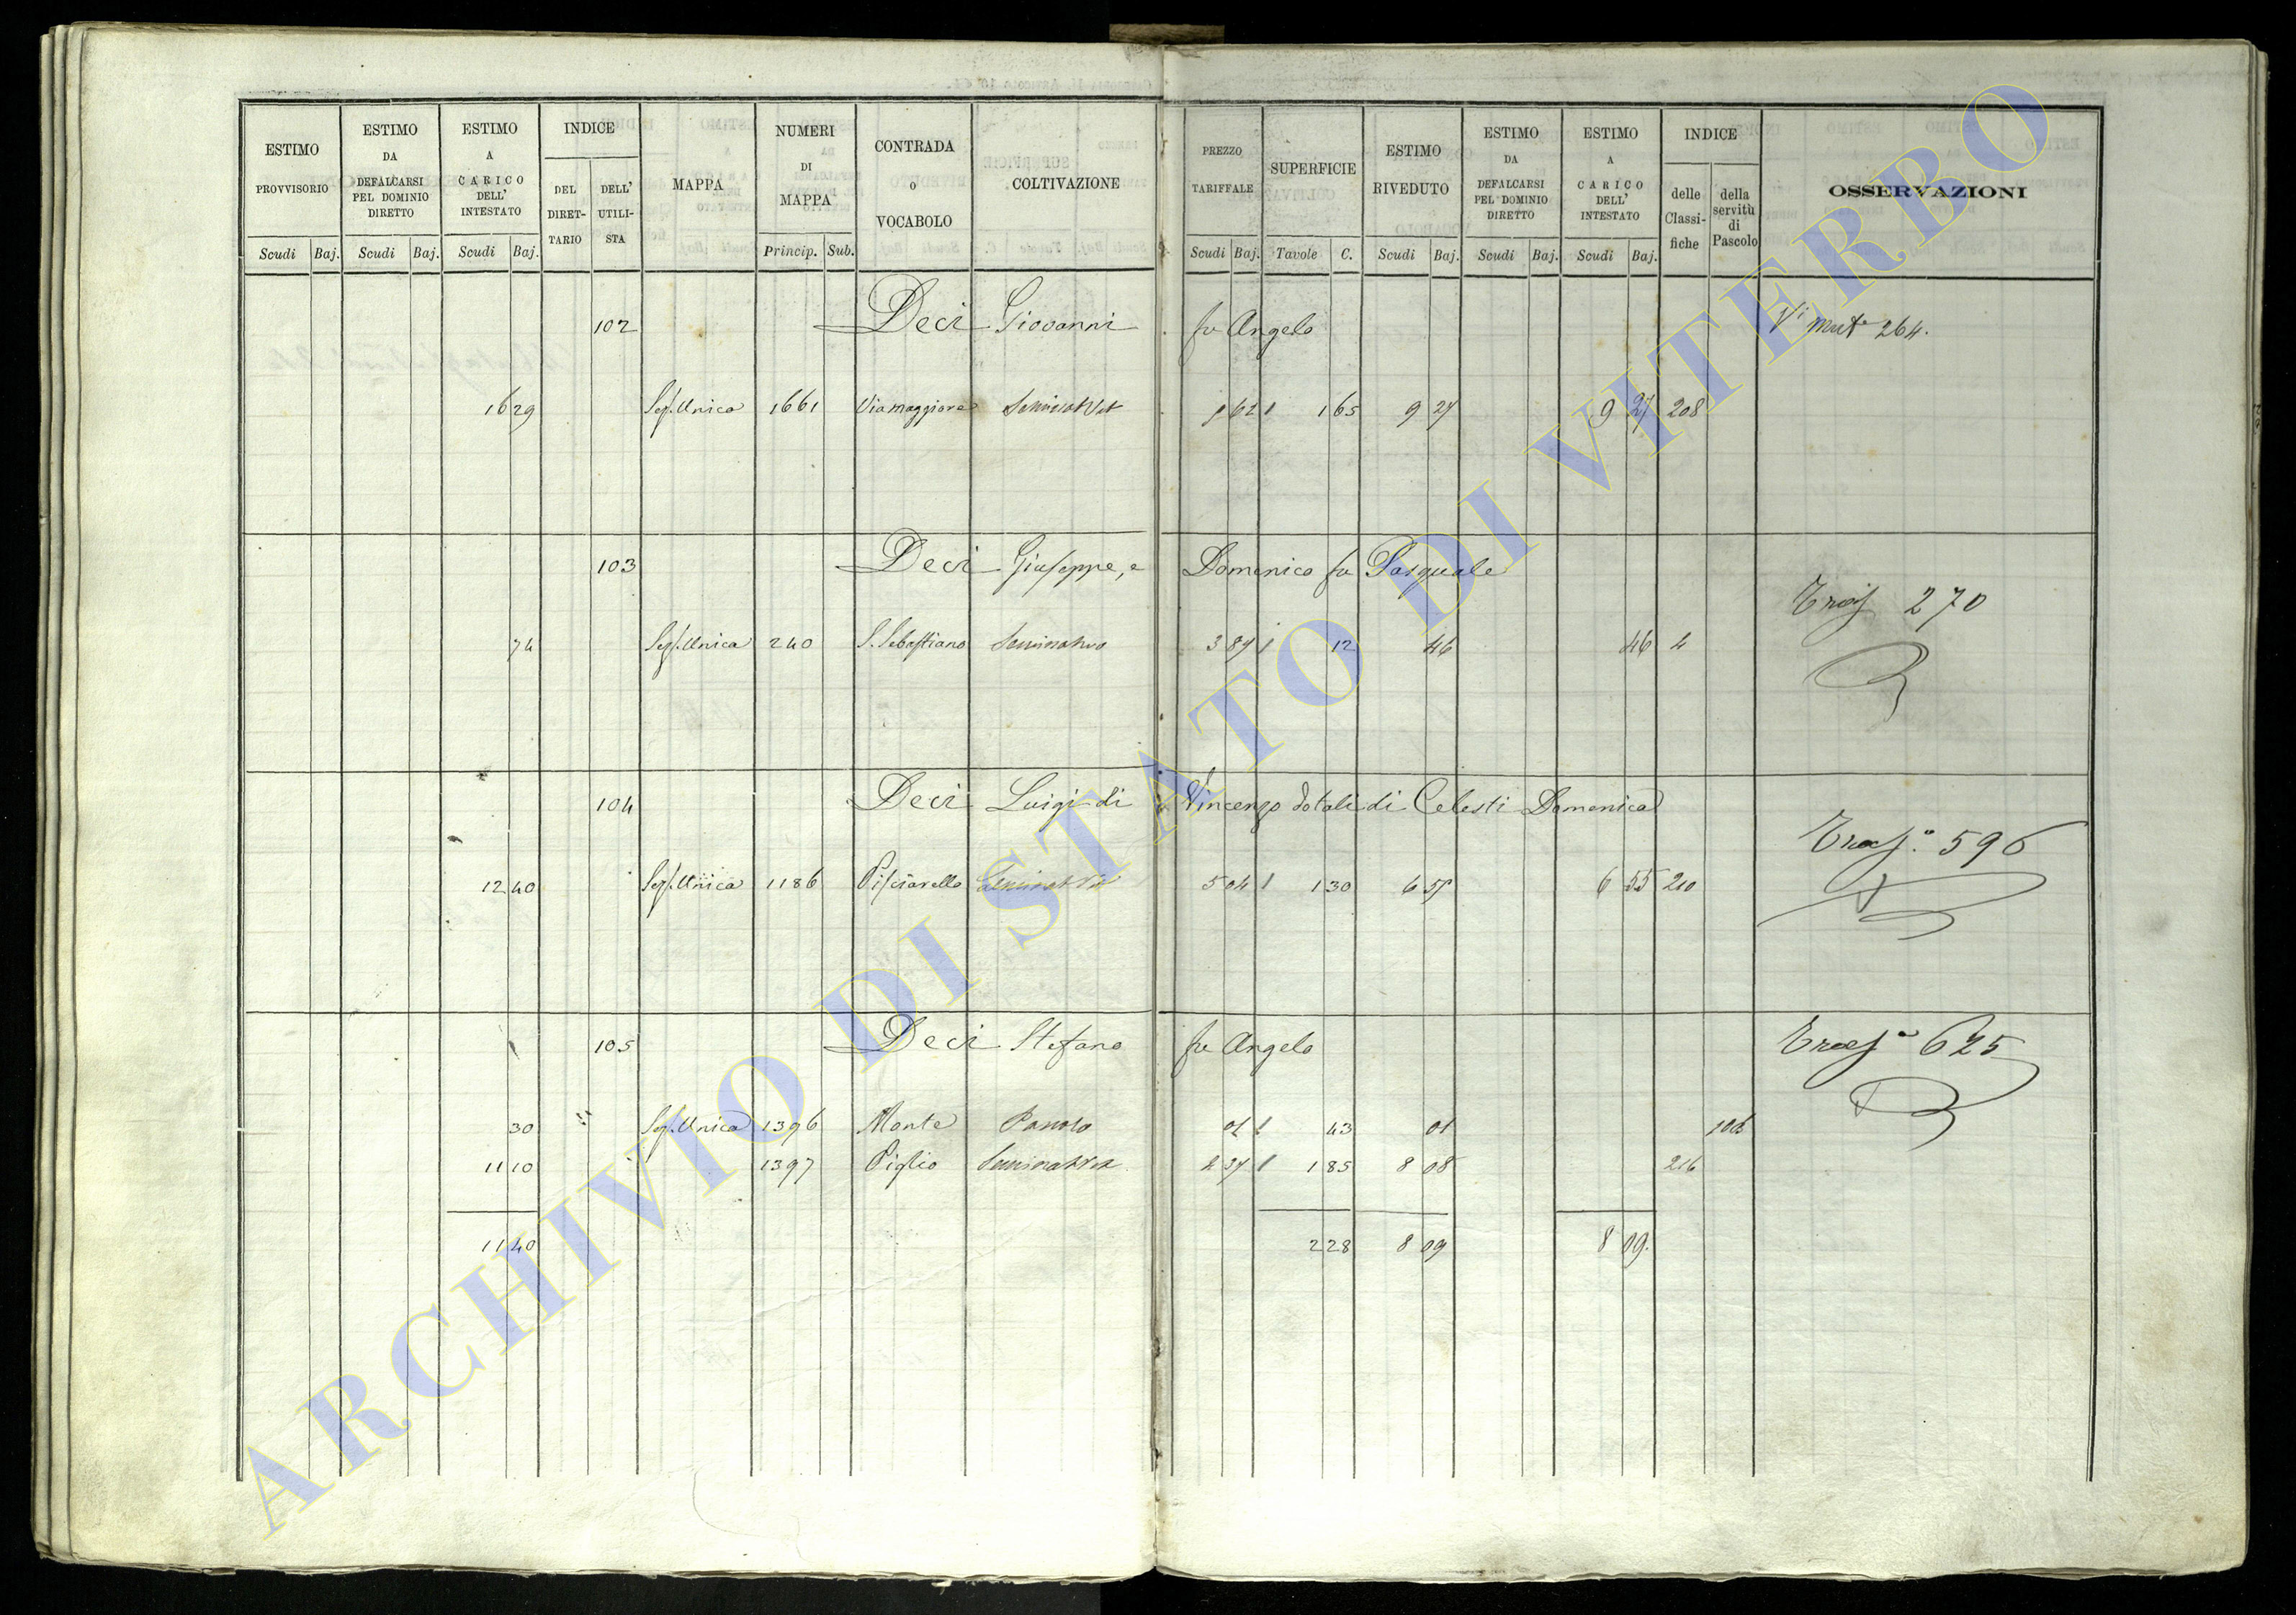 ESTIMO PROVVISORIO Scudi Baj.
ESTIMO DA DEFALCARSI PEL DOMINIO DIRETTO Scudi Baj.
ESTIMO A CARICO DELL' INTESTATO Scudi Baj.
INDICE DEL DIRET-TARIO DELL' UTILI-STA
MAPPA
NUMERI DI MAPPA Princip. Sub.
CONTRADA O VOCABOLO
COLTIVAZIONE
PREZZO TARIFFALE Scudi Baj.
SUPERFICIE Tavole C.
ESTIMO RIVEDUTO Scudi Baj.
ESTIMO DA DEFALCARSI PEL DOMINIO DIRETTO Scudi Baj.
ESTIMO A CARICO DELL' INTESTATO Scudi Baj.
INDICE delle Classi-fiche della servitù di Pascolo
OSSERVAZIONI
102 Deci Giovanni fu Angelo 264.
16 29 Sez. Unica 1661 Viamaggiore 1 65 9 27 9 27 208
103 Deci Giuseppe, e Domenico fu Pasquale 270
74 Sez. Unica 240 S. Sebastiano Seminativo 3 89 12 46 46 4
104 Deci Luigi di Vincenzo dotali di Celesti Domenica 596
12 40 Sez. Unica 1186 Pisciarello 5 04 1 30 6 55 6 55 210
105 Deci Stefano fu Angelo 625
30 Sez. Unica 1396 Monte Pascolo 01 43 01
11 10 1397 Piglio 4 37 1 85 8 08 216
11 40 2 28 8 09 8 09.
ARCHIVIO DI STATO DI VITERBO